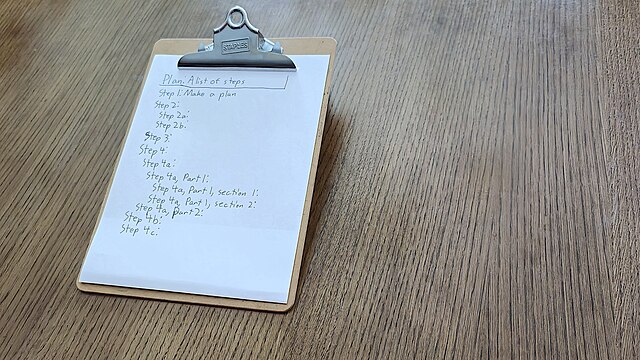 STAPLES
Plan: A list of steps
Step 1: Make a plan
Step 2:
Step 2a:
Step 2b:
Step 3:
Step 4:
Step 4a:
Step 4a, Part 1:
Step 4a, Part 1, section 1:
Step 4a, Part 1, section 2:
Step 4a, Part 2:
Step 4b:
Step 4c: